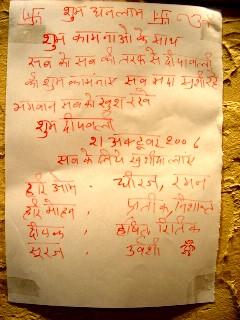 शुभ धनलाभ
शुभ कामनाओ के साथ
सब को सब की तरफ से दीपावली
की शुभ कामनाए सब सदा खुशी रहे
भगवान सब को खुश रखे
शुभ दीपावली
21 अक्टूबर 2006
सब के लिये खुशीया लाए
हरि ओम . धीरज, रमन
हरि मोहन , प्रतीक, निशान्त
दीपक , हर्षित, रितिक
सूरज , उर्वशी